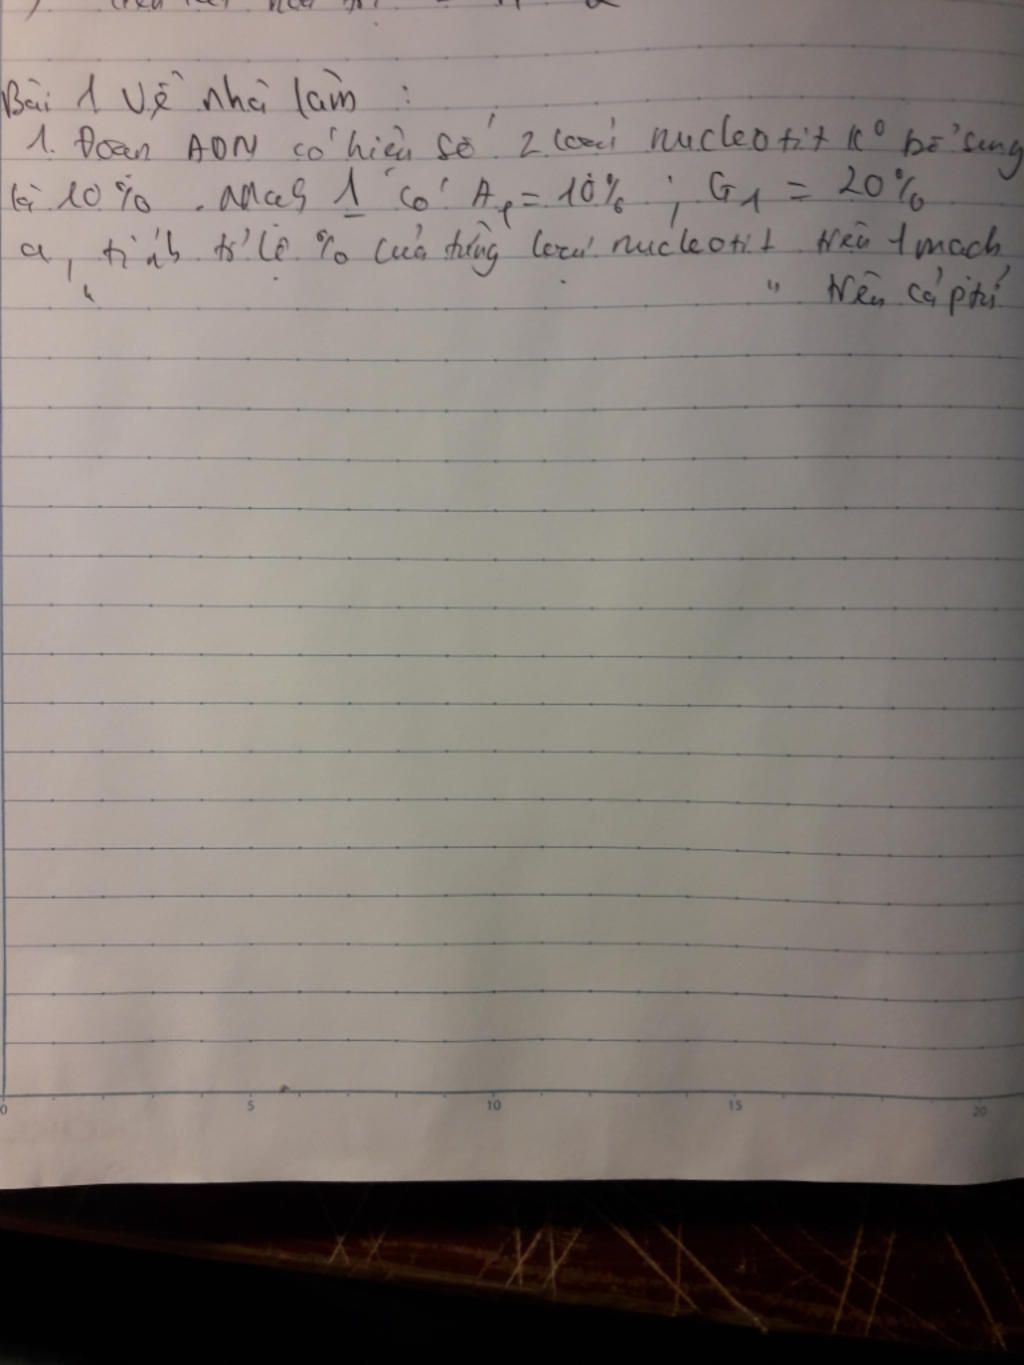 Bài 1 Về nhà làm :
1. Đoạn ADN có hiệu số 2 loại nucleotit K° bổ sung
là 10%. Mạch 1 có A1 = 10% ; G1 = 20%
a, tính tỉ lệ % của từng loại nucleotit trên 1 mạch
" " trên cả ptử
0 5 10 15 20